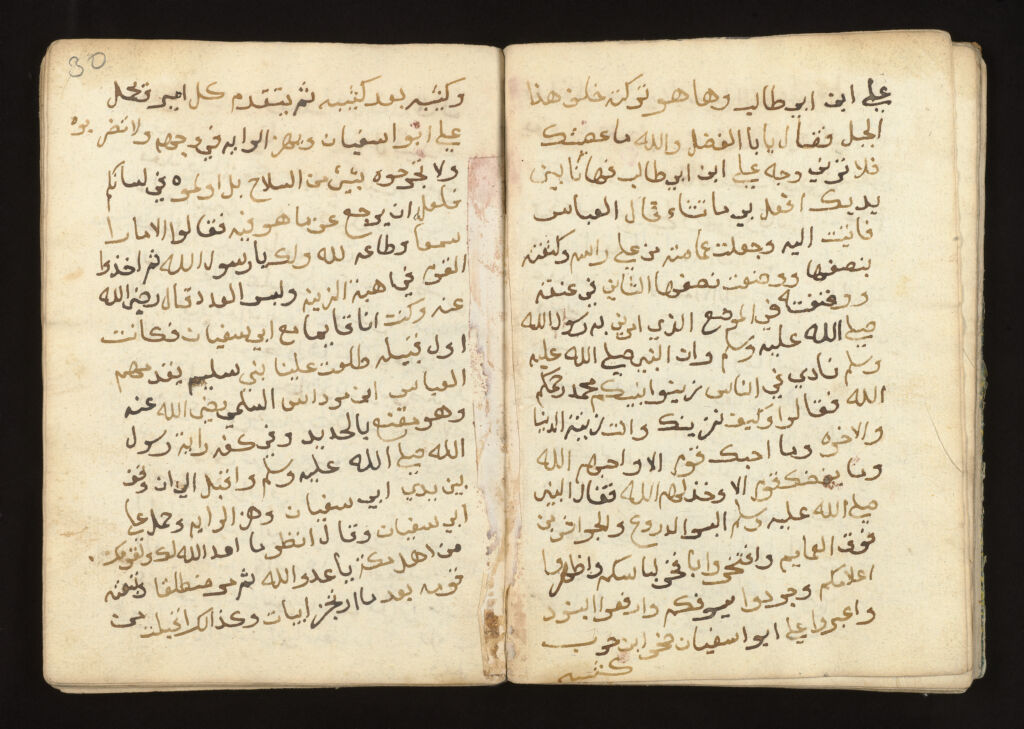 علي ابن ابي طالب وها هو تركته خلف هذا
الجبل فقال يا با الفضل والله ما عصيتك
فلا تريني وجه علي ابن ابي طالب فها انا بين
يديك افعل بي ما تشاء قال العباس
فاتيت اليه وجعلت عمامته من علي راسه وكتفته
بنصفها ووضعت نصفها الثاني في عنقه
ووقفته في الموضع الذي امرني به رسول الله
صلي الله عليه وسلم وان النبي صلي الله عليه
وسلم نادي في الناس زينوا انبيكم محمد رحمكم
الله فقالوا وكيف نزينك وانت زينة الدنيا
والاخره وما احبك قوم الا واحبهم الله
وما يبغضك قوم الا وخذلهم الله فقال النبي
صلي الله عليه وسلم البسوا الدروع والجواشن
فوق العمايم وافتخروا بافخر لباسكم واظهروا
اعلامكم وجردوا سيوفكم وارفعوا البنود
واعبروا علي ابو اسفيان صخر ابن حرب
كتيبه
30
وكتيبه بعد كتيبه ثم يتقدم كل امير
علي ابو اسفيان ويهز الرايه في وجهه ولا تضربوه
ولا تجرحوه بشئ من السلاح بل اولموه في لسانكم
فلعل ان يرجع عن ما هو فيه فقالوا الامارا
سمعا وطاعه لله ولك يا رسول الله ثم اخذوا
القوم في اهبة الزينه ولبس العدد قال رضي الله
عنه وكنت انا قايما مع ابي سفيان فكانت
اول قبيله طلعت علينا بني سليم يقدمهم
العباس ابن مرداس السلمي رضي الله عنه
وهو مقنع بالحديد وفي كفه راية رسول
الله صلي الله عليه وسلم واقبل الي ان وقف
بين يدي ابي سفيان وهز الرايه وحمل علي
ابي سفيان وقال انظر ما اعد الله لك ولقومك
من اهل مكة يا عدو الله ثم مر منطلقا وتبعته
قومه بعد ما ارتجز ابيات وكذالك اقبلت